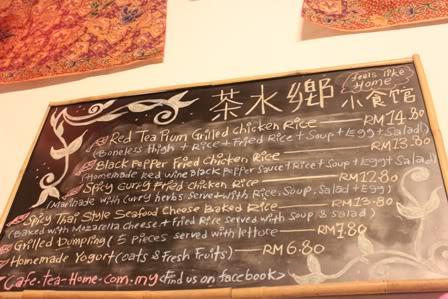 茶水鄉 小食馆
feels like Home
Red Tea Plum Grilled Chicken Rice — RM14.80
(Boneless thigh + Rice + Fried Rice + Soup + Egg + Salad)
Black Pepper Fried Chicken Rice — RM13.80
(Homemade Red wine Black Pepper Sauce + Rice + Soup + Eggt Salad)
Spicy Curry Fried Chicken Rice — RM12.80
(Marinade with Curry herbs Served with Rice, Soup, Salad + Egg)
Spicy Thai Style Seafood Cheese Baked Rice — RM13.80
(Baked with Mozarella Cheese + Fried Rice Served with Soup & Salad)
Grilled Dumpling (5 pieces served with lettuce — RM7.80
Homemade Yogurt (oats & Fresh Fruits) — RM6.80
Cafe.tea-Home.com.my <Find us on facebook>